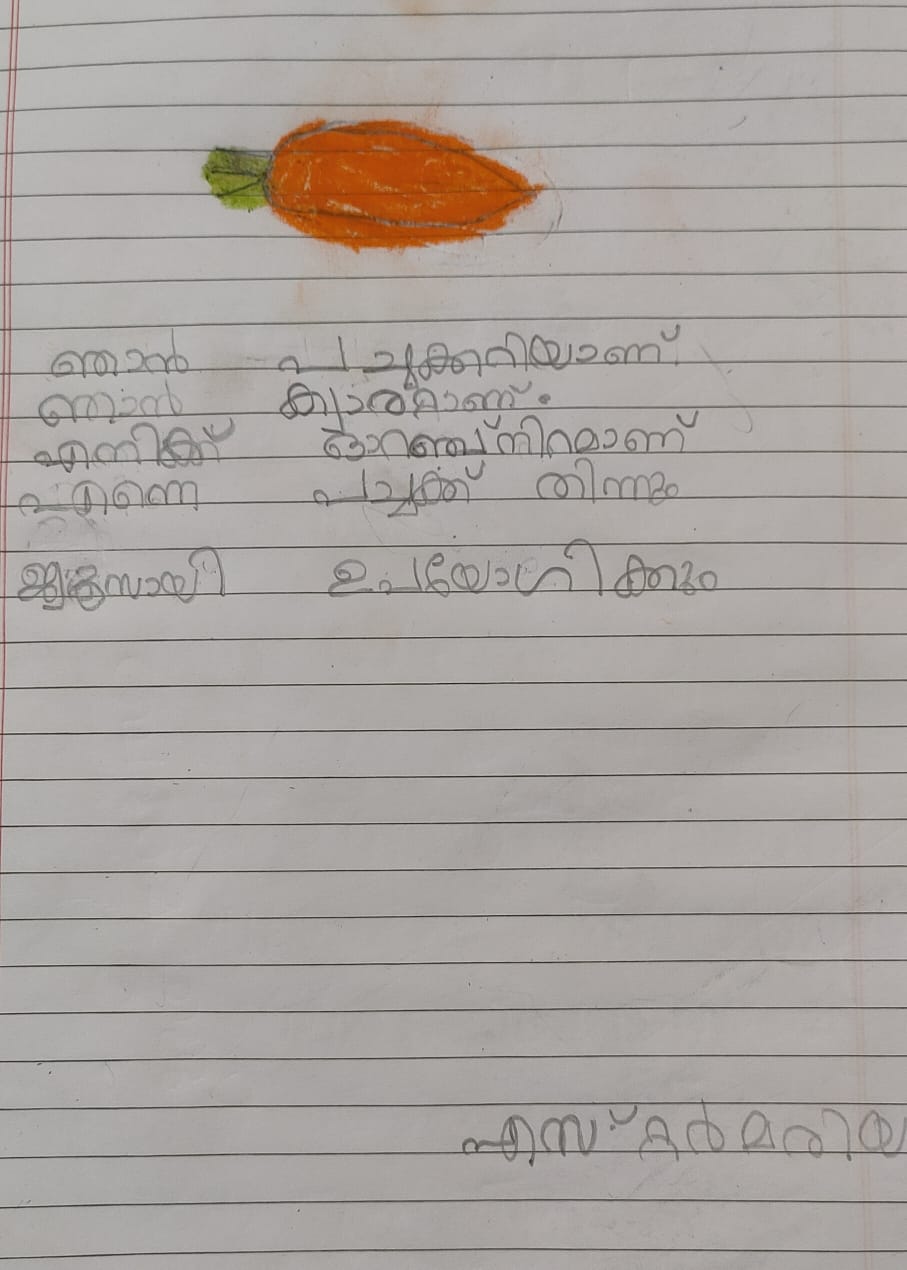 ഞാൻ പച്ചക്കറിയാണ്
ഞാൻ ക്യാരറ്റാണ്.
എനിക്ക് ഓറഞ്ച് നിറമാണ്
എന്നെ പച്ചക്ക് തിന്നാം
ജ്യൂസായി ഉപയോഗിക്കാം
എസ്ഥർ മരിയ